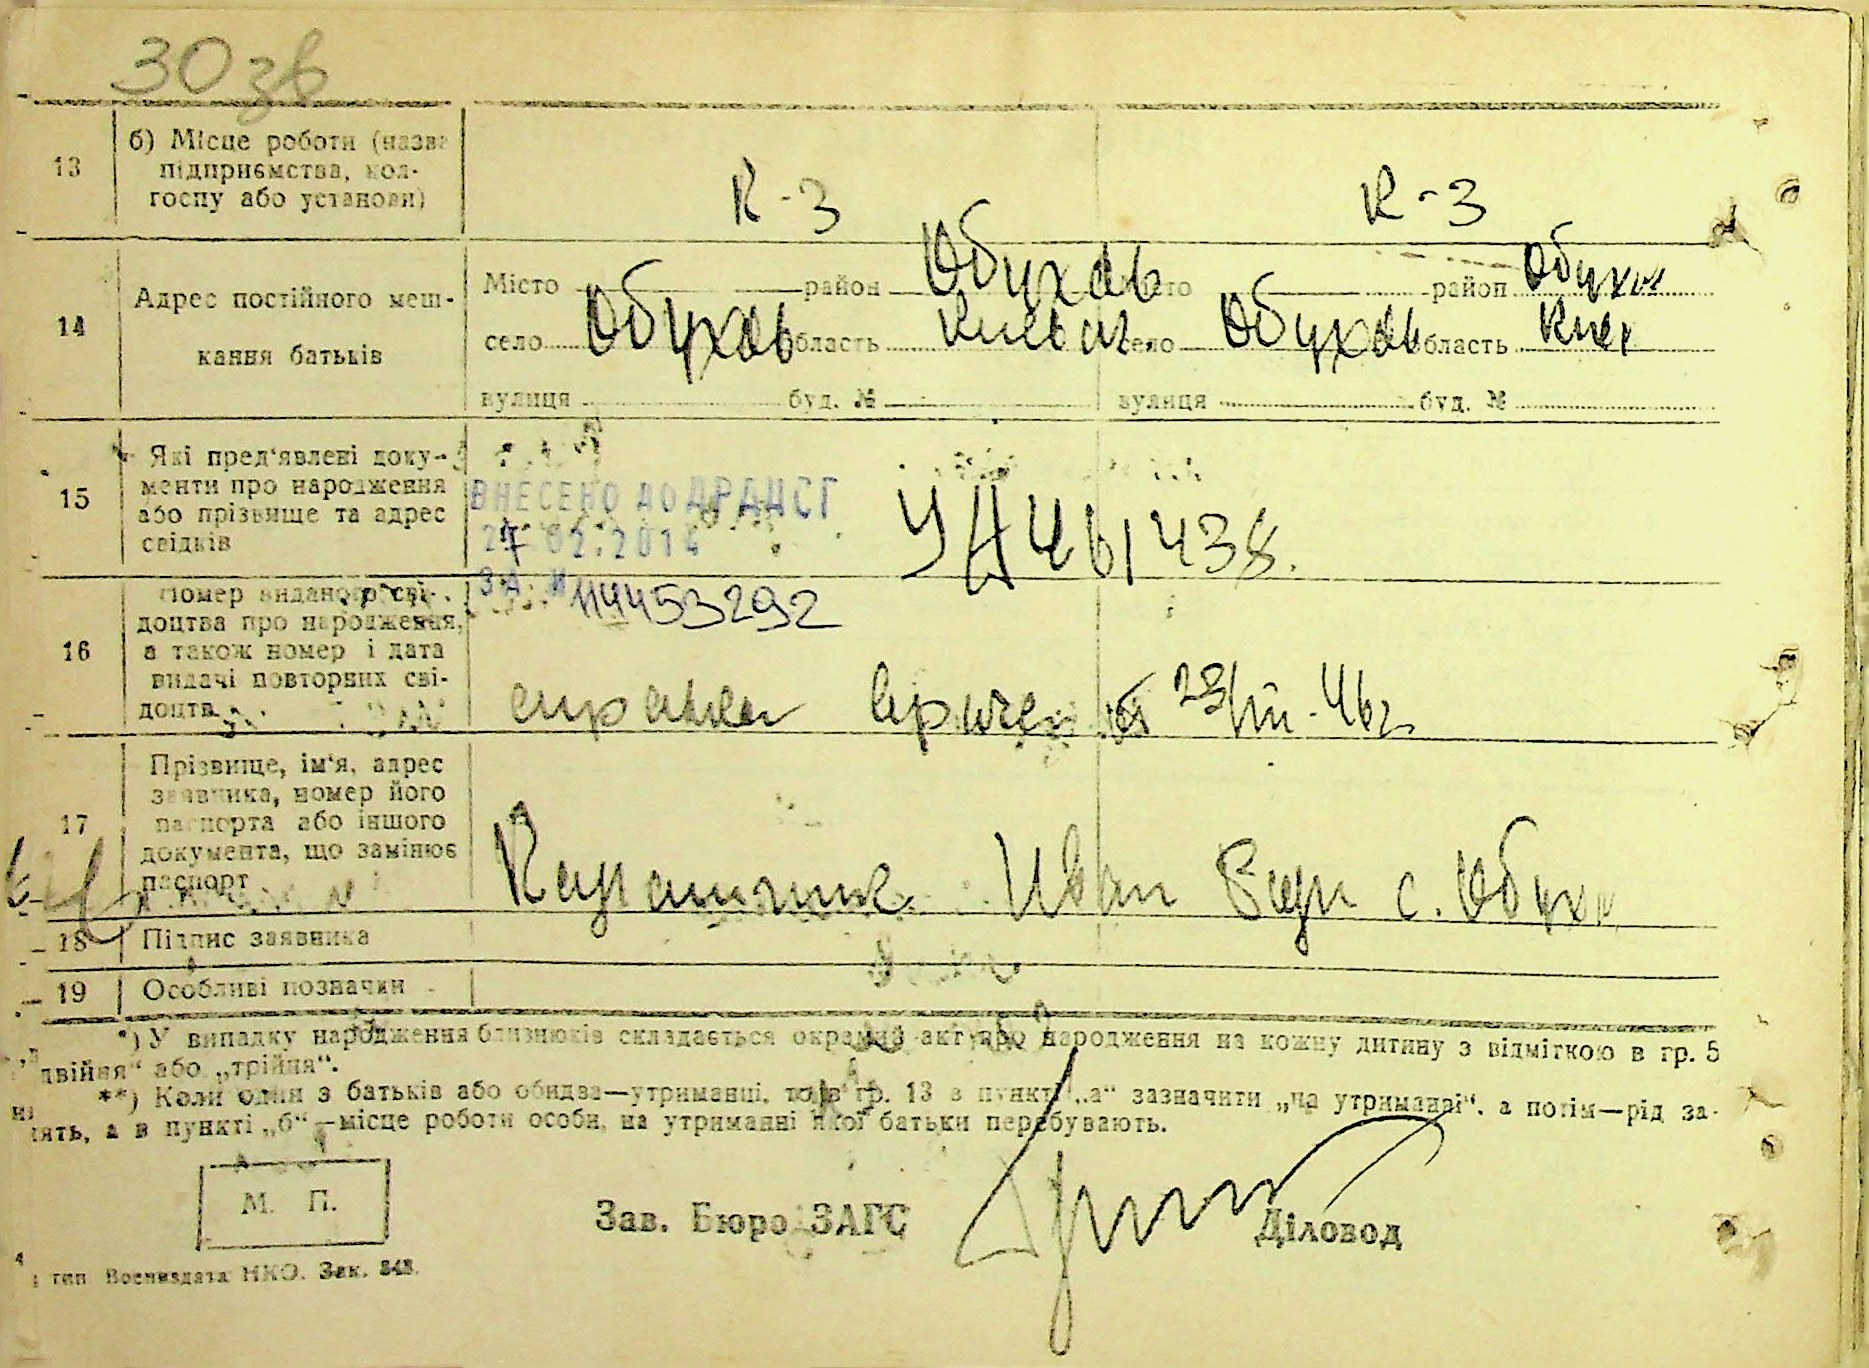 30 зв
13
б) Місце роботи (назва
підприємства, кол-
госпу або установи)
К-3
К-3
14
Адрес постійного меш-
кання батьків
Місто район Обухов
село Обухов область Киевск.
вулиця буд. №
Місто район Обухов
село Обухов область Киев
вулиця буд. №
15
Які пред'явлені доку-
менти про народження
або прізвище та адрес
свідків
ВНЕСЕНО ДО ДРАЦСГ
27.02.2014
ЗА №
114453292
УД 461438.
16
Номер виданого сві-
доцтва про народження,
а також номер і дата
видачі повторних сві-
доцтв
справка 46г
17
Прізвище, ім'я, адрес
заявника, номер його
паспорта або іншого
документа, що замінює
паспорт
Иван с. Обухов
18
Підпис заявника
19
Особливі позначки
*) У випадку народження близнюків складається окремий акт про народження на кожну дитину з відміткою в гр. 5
„двійня“ або „трійня“.
**) Коли один з батьків або обидва—утриманці, то в гр. 13 в пункті „а“ зазначити „на утриманні“, а потім—рід за-
нять, а в пункті „б“—місце роботи особи, на утриманні якої батьки перебувають.
М. П.
Зав. Бюро ЗАГС
Діловод
4 тип Воениздата НКО. Зак. 348.